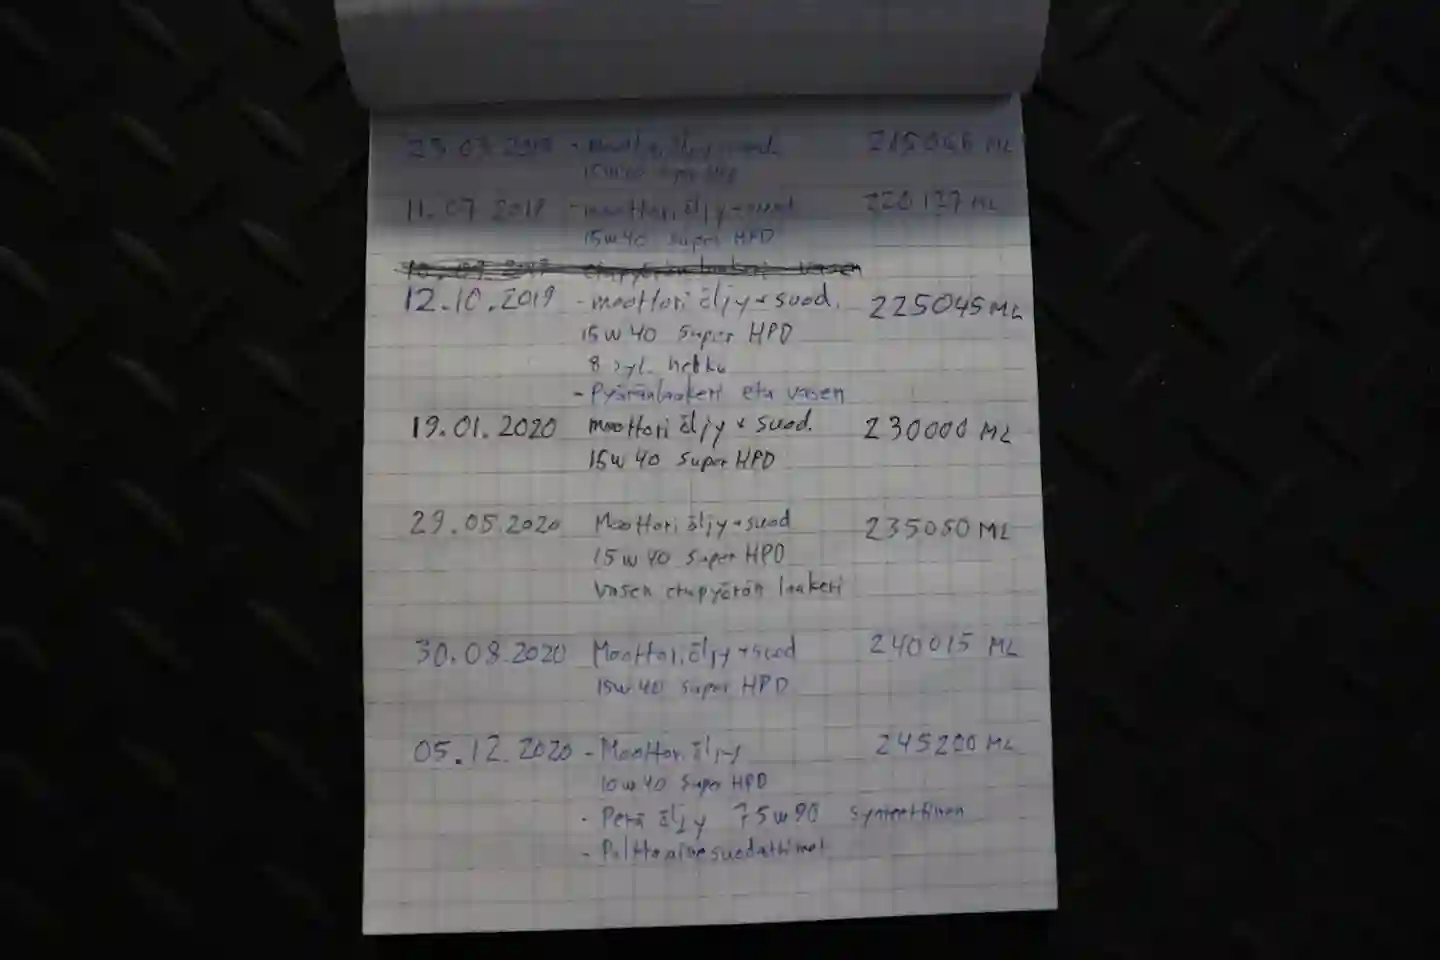 23.03.2019 - moottori öljy + suod. 215066 ML
15w40 Super HPD
11.07.2019 - moottori öljy + suod 220127 ML
15w40 Super HPD
etupyörän laakeri vasen
12.10.2019 - moottori öljy + suod. 225045 ML
15w40 Super HPD
8 syl. hetku
- Pyöränlaakeri etu vasen
19.01.2020 moottori öljy + suod. 230000 ML
15w40 Super HPD
29.05.2020 Moottori öljy + suod 235050 ML
15w40 Super HPD
Vasen etupyörän laakeri
30.08.2020 Moottori öljy + suod 240015 ML
15w40 Super HPD
05.12.2020 - Moottori öljy 245200 ML
10w40 Super HPD
- Perä öljy 75w90 Synteettinen
- Polttoainesuodattimet